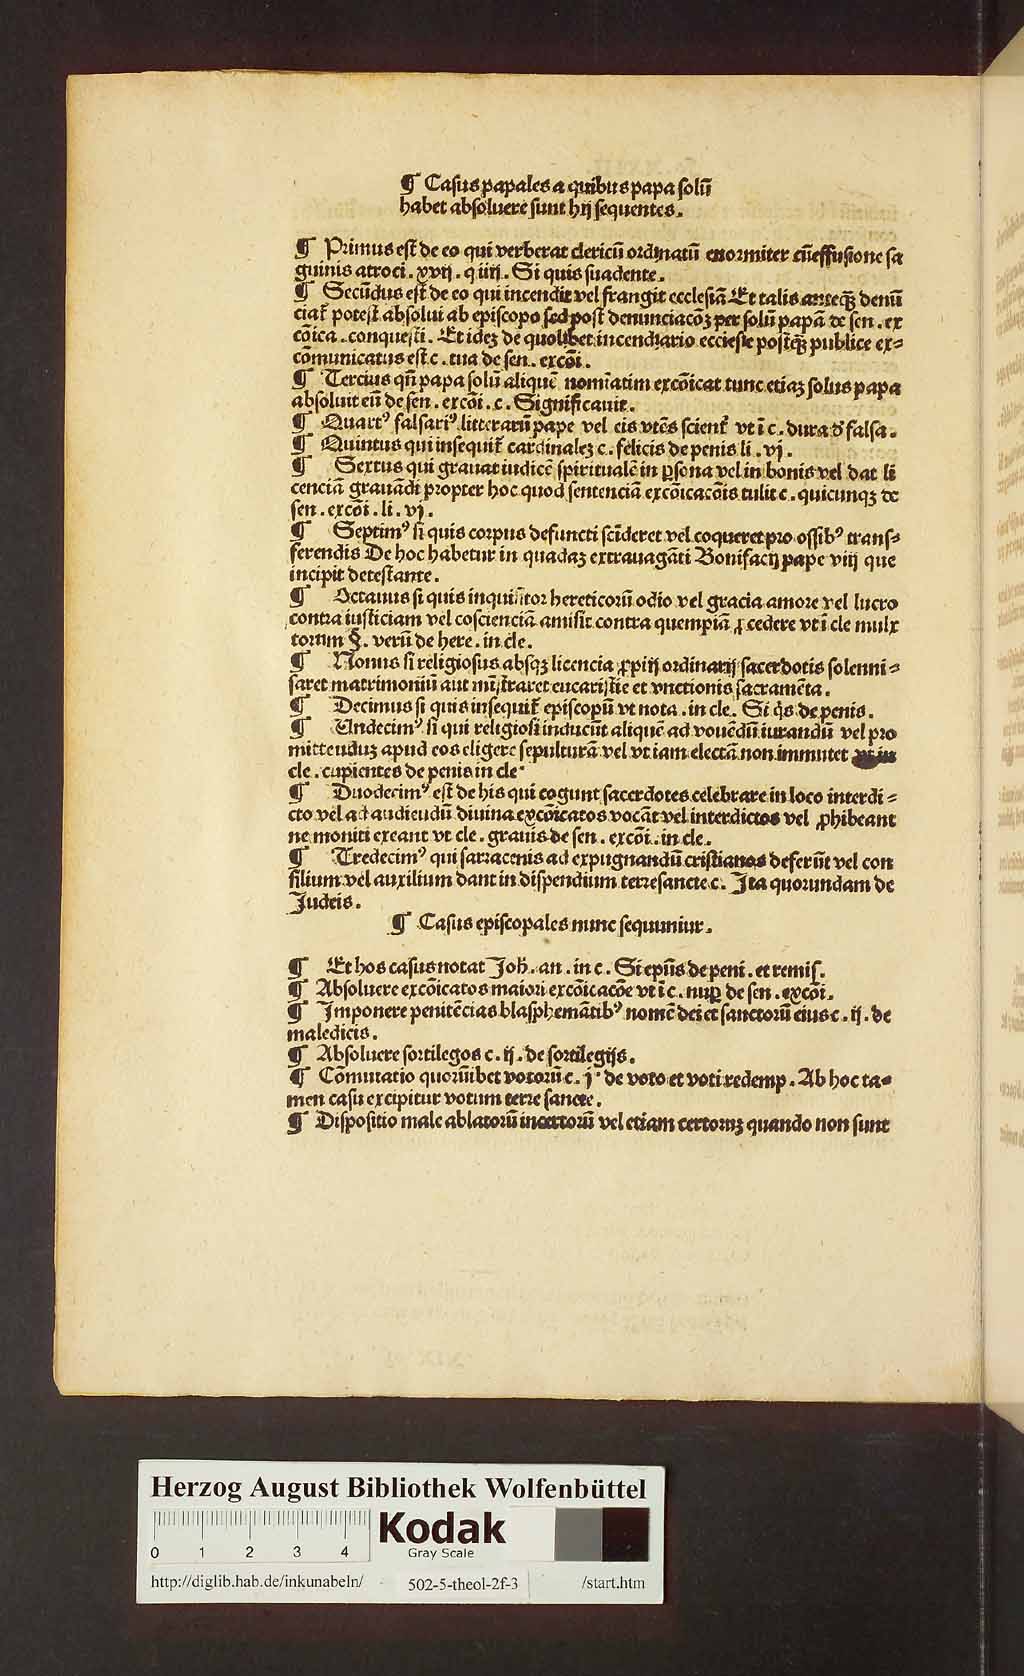 ¶ Casus papales a quibus papa solū
habet absoluere sunt hij sequentes.
¶ Primus est de eo qui verberat clericū ordinatū enormiter cū effusione sa
guinis atroci. xvij. q iiij. Si quis suadente.
¶ Secūdus est de eo qui incendit vel frangit ecclesiā Et talis anteqꝫ denū
ciat᷑ potest absolui ab episcopo sed post denunciacōꝫ per solū papā de sen. ex
cōica. conquesti. Et ideꝫ de quolibet incendiario ecclesie postqꝫ publice ex⸗
cōmunicatus est c. tua de sen. excōi.
¶ Tercius qn̄ papa solū aliquē nomīatim excōicat tunc etiaꝫ solus papa
absoluit eū de sen. excōi. c. Significauit.
¶ Quartꝰ falsariꝰ litterarū pape vel eis vtēs scient᷑ vt ī c. dura d̕ falsa.
¶ Quintus qui insequit᷑ cardinaleꝫ c. felicis de penis li. vj.
¶ Sextus qui grauat iudicē spiritualē in ꝑsona vel in bonis vel dat li
cenciā grauādi propter hoc quod sentenciā excōicacōis tulit c. quicunqꝫ de
sen. excōi. li. vj.
¶ Septimꝰ si quis corpus defuncti scīderet vel coqueret pro ossibꝰ trans⸗
ferendis De hoc habetur in quadaꝫ extrauagāti Bonifacij pape viij que
incipit detestante.
¶ Octauus si quis inquisitor hereticorū odio vel gracia amore vel lucro
contra iusticiam vel cōscienciā amisit contra quempiā ꝓcedere vt ī cle mulx
torum §. verū de here. in cle.
¶ Nonus si religiosus absqꝫ licencia ꝓprij ordinarij sacerdotis solenni⸗
saret matrimoniū aut mīstraret eucaristie et vnctionis sacramēta.
¶ Decimus si quis insequit᷑ episcopū vt nota. in cle. Si q̇s de penis.
¶ Undecimꝰ si qui religiosi inducūt aliquē ad vouēdū iurandū vel pro
mittenduꝫ apud eos eligere sepulturā vel vt iam electā non immutet vt in
cle. cupientes de penis in cle.
¶ Duodecimꝰ est de his qui cogunt sacerdotes celebrare in loco interdi⸗
cto vel ad audiendū diuina excōicatos vocāt vel interdictos vel ꝓhibeant
ne moniti exeant vt cle. grauis de sen. excōi. in cle.
¶ Tredecimꝰ qui sarracenis ad expugnandū cristianos deferūt vel con
silium vel auxilium dant in dispendium terre sancte c. Ita quorundam de
Judeis.
¶ Casus episcopales nunc sequuntur.
¶ Et hos casus notat Joh̄. an. in c. Si ep̄us de peni. et remis.
¶ Absoluere excōicatos maiori excōicacōe vt ī c. nuꝑ de sen. excōi.
¶ Imponere penitēcias blasphemātibꝰ nomē dei et sanctorū eius c. ij. de
maledicis.
¶ Absoluere sortilegos c. ij. de sortilegijs.
¶ Cōmutatio quorūlibet votorū c. j. de voto et voti redemp. Ab hoc ta⸗
men casu excipitur votum terre sancte.
¶ Dispositio male ablatorū incertorū vel etiam certoruꝫ quando non sunt
Herzog August Bibliothek Wolfenbüttel
0 1 2 3 4
Kodak
Gray Scale
http://diglib.hab.de/inkunabeln/ 502-5-theol-2f-3 /start.htm